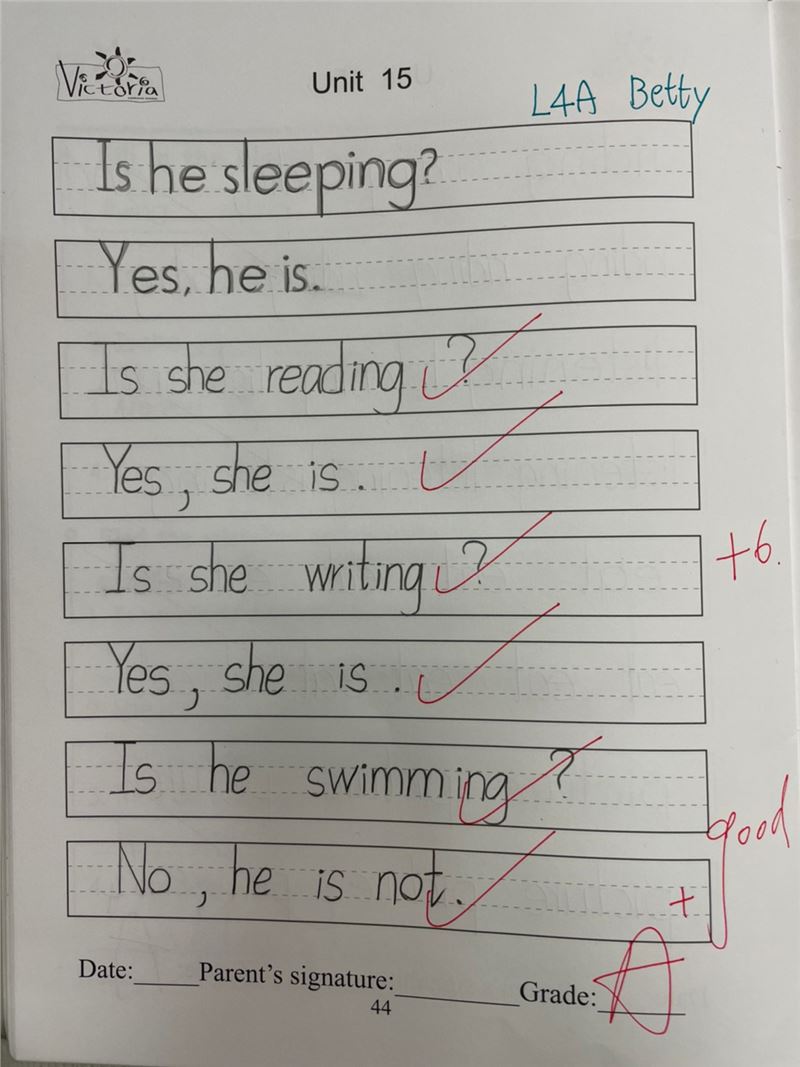 Victoria
Unit 15
L4A Betty
Is he sleeping?
Yes, he is.
Is she reading ?
Yes, she is.
Is she writing ?
+6.
Yes, she is.
Is he swimming ?
good
No, he is not.
+
Date:_____Parent's signature:__________Grade:_______
A
44